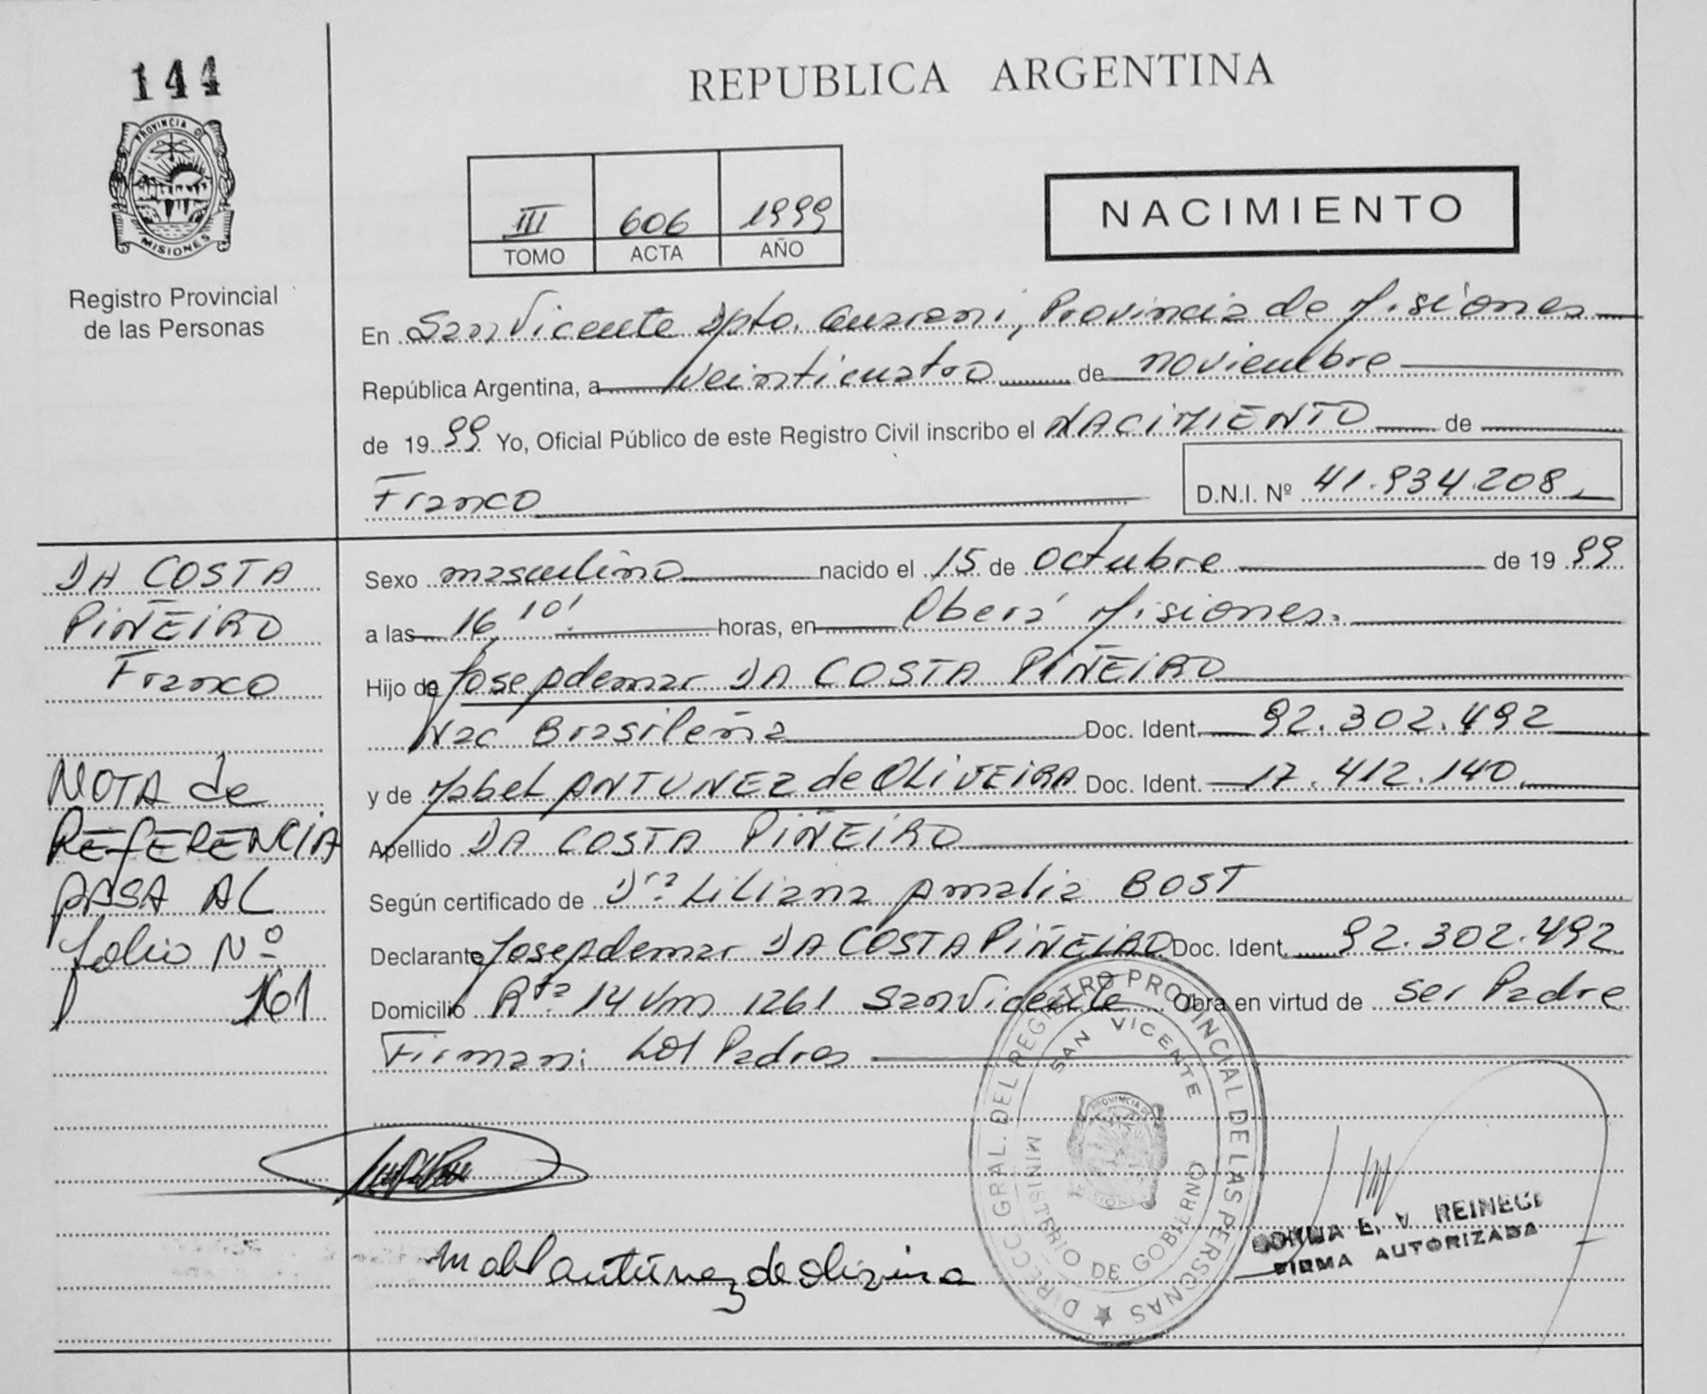 144
REPUBLICA ARGENTINA
PROVINCIA DE
MISIONES
Registro Provincial
de las Personas
III 606 1999
TOMO ACTA AÑO
NACIMIENTO
En San Vicente Dpto. Guarani, Provincia de Misiones
República Argentina, a veinticuatro de noviembre
de 1999 Yo, Oficial Público de este Registro Civil inscribo el NACIMIENTO de
Franco D.N.I. Nº 41.934.208
DA COSTA
PIÑEIRO
Franco
NOTA de
REFERENCIA
PASA AL
folio Nº
161
Sexo masculino nacido el 15 de octubre de 1999
a las 16,10' horas, en Oberá Misiones.
Hijo de Josepdemar DA COSTA PIÑEIRO
Nac Brasileña Doc. Ident. 92.302.492
y de Mabel ANTUNEZ de OLIVEIRA Doc. Ident. 17.412.140
Apellido DA COSTA PIÑEIRO
Según certificado de Dra. Liliana Amalia BOST
Declarante Josepdemar DA COSTA PIÑEIRO Doc. Ident. 92.302.492
Domicilio Rta 14 Km 1261 San Vicente Obra en virtud de ser Padre
Firman: Los Padres
DIRECC. GRAL. DEL REGISTRO PROVINCIAL DE LAS PERSONAS
SAN VICENTE
MINISTERIO DE GOBIERNO
PROVINCIA DE
Mabel antúnez de oliveira
E. V. REINECK
FIRMA AUTORIZADA